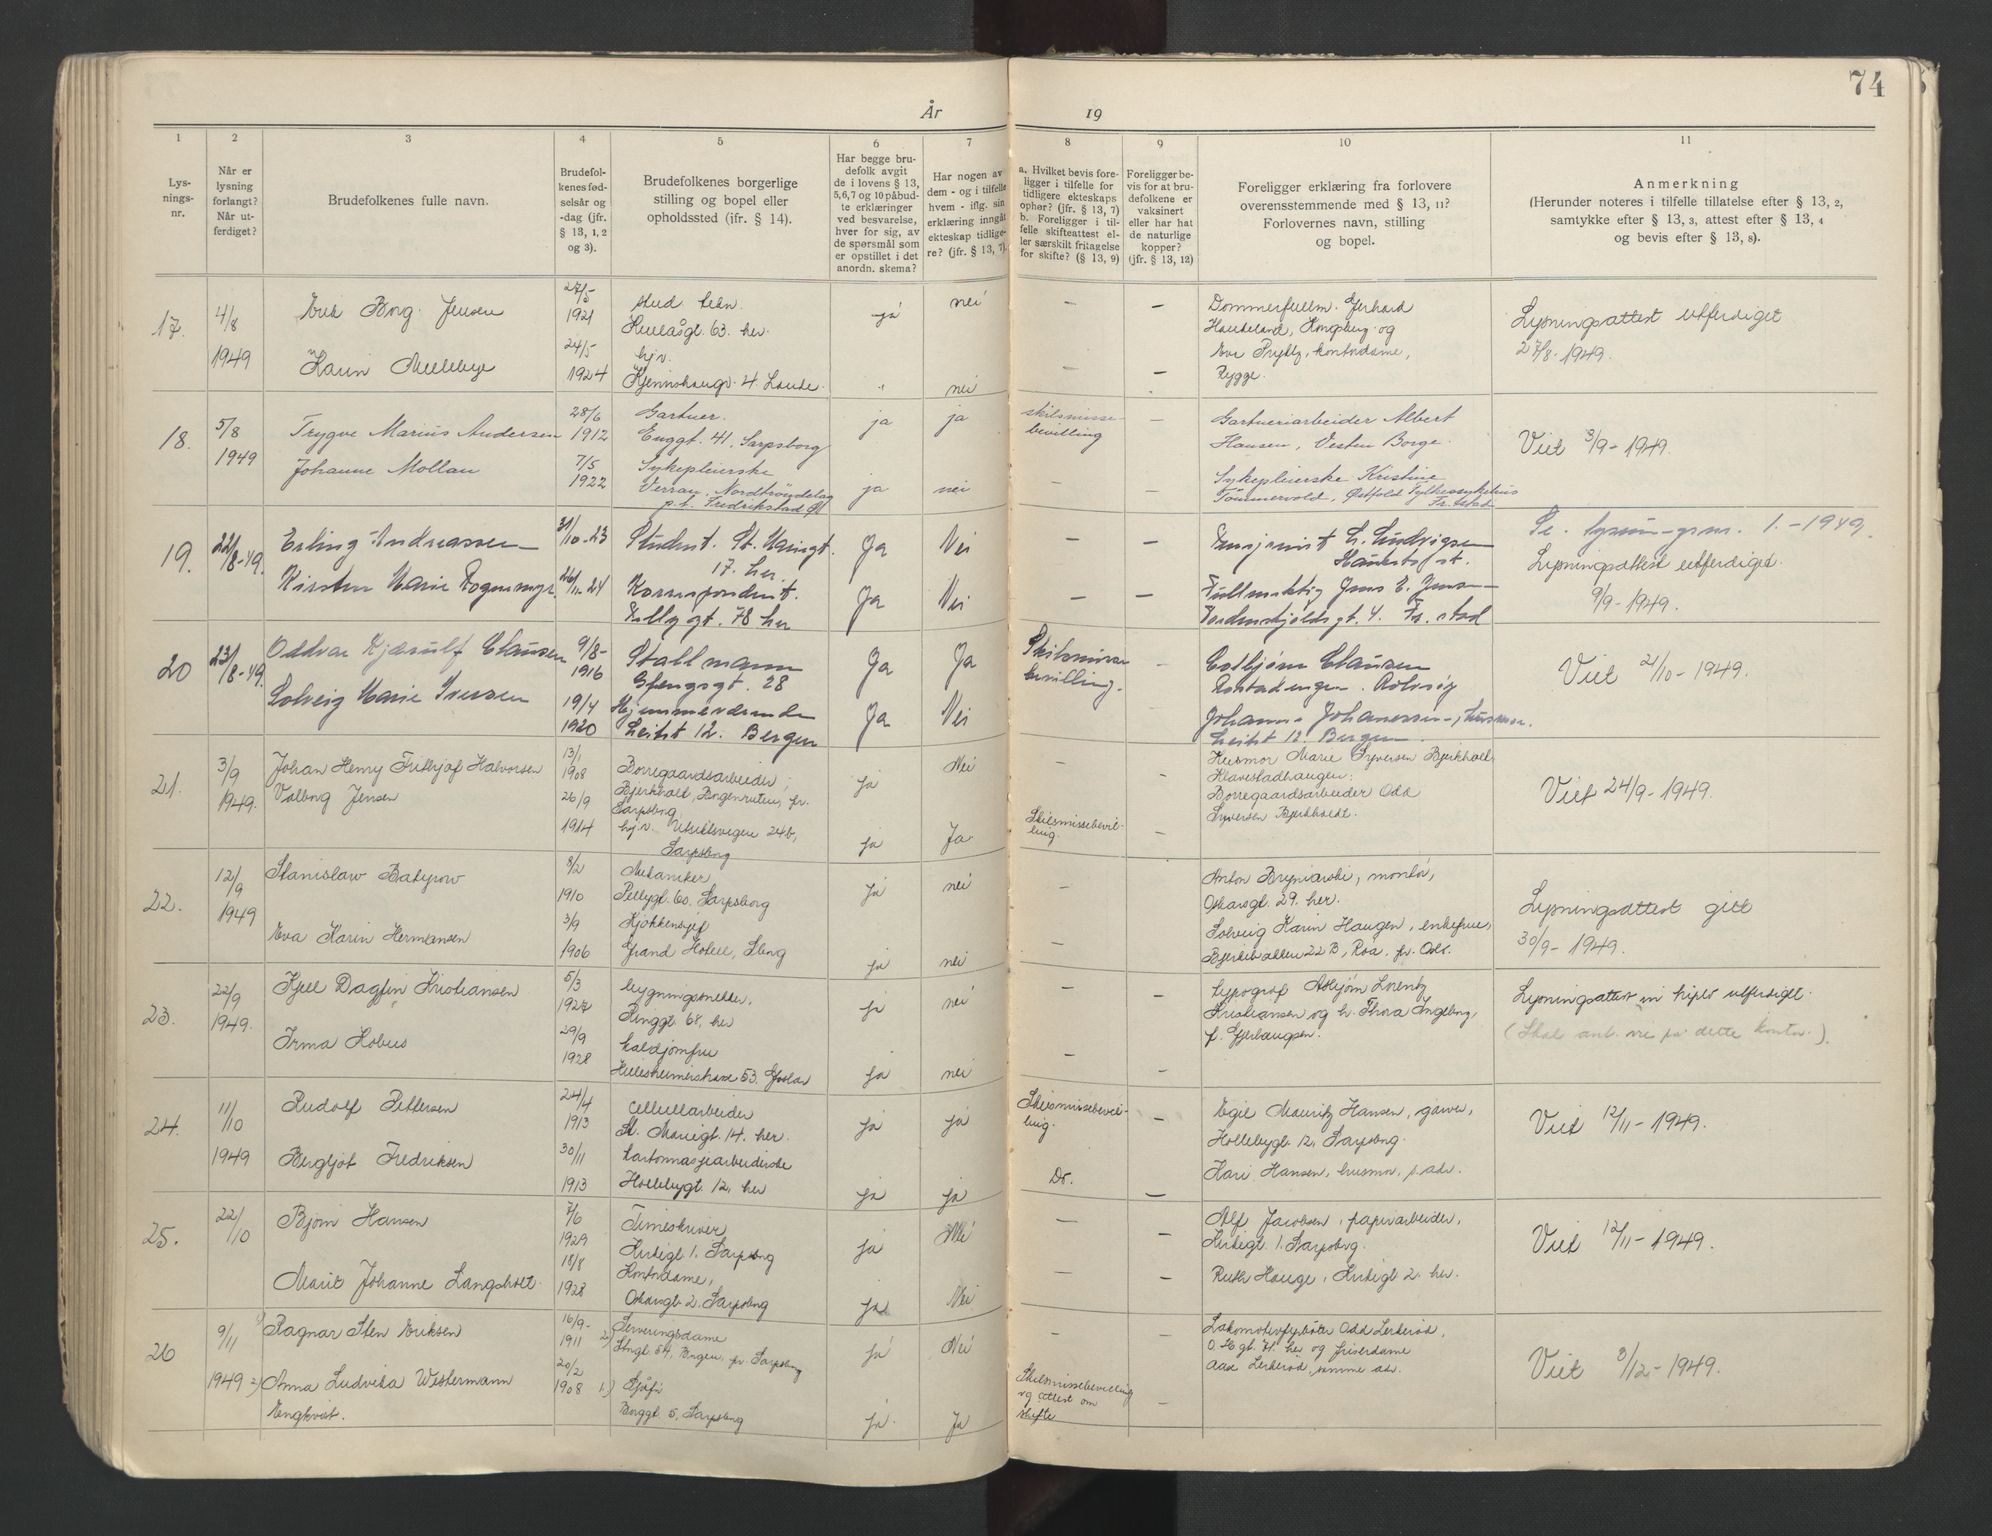 74
År 19
1 2 3 4 5 6 7 8 9 10 11
Lys-
nings-
nr.
Når er
lysning
forlangt?
Når ut-
ferdiget?
Brudefolkenes fulle navn.
Brudefol-
kenes fød-
selsår og
-dag (jfr.
§ 13, 1, 2
og 3).
Brudefolkenes borgerlige
stilling og bopel eller
opholdssted (jfr. § 14).
Har begge bru-
defolk avgit
de i lovens § 13,
5,6,7 og 10 påbud-
te erklæringer
ved besvarelse,
hver for sig, av
de spørsmål som
er opstillet i det
anordn. skema?
Har nogen av
dem - og i tilfelle
hvem - iflg. sin
erklæring inngått
ekteskap tidlige-
re? (jfr. § 13, 7).
a. Hvilket bevis fore-
ligger i tilfelle for
tidligere ekteskaps
ophør? (jfr. § 13, 7)
b. Foreligger i til-
felle skifteattest el-
ler særskilt fritagelse
for skifte? (§ 13, 9)
Foreligger be-
vis for at bru-
defolkene er
vaksinert
eller har hat
de naturlige
kopper?
(jfr. § 13, 12)
Foreligger erklæring fra forlovere
overensstemmende med § 13, 11?
Forlovernes navn, stilling
og bopel.
Anmerkning
(Herunder noteres i tilfelle tillatelse efter § 13, 2,
samtykke efter § 13, 3, attest efter § 13, 4
og bevis efter § 13, 8).
17.
4/8
1949
Erik Borg Jensen
27/5
1921
stud. tekn.
63. her.
ja
nei
-
-
Dommerfullm. Gerhard
Haukeland, Kongsberg og
Eva Prytz, kontordame,
Rygge.
Lysningsattest utferdiget
27/8. 1949.
Karin
24/5
1924
hjv.
4. Lande.
"
nei
-
-
18.
5/8
1949
Trygve Marius Andersen
28/6
1912
Gartner.
Enggt. 41, Sarpsborg
ja
ja
skilsmisse-
bevilling
-
Gartneriarbeider Albert
Hansen, Vesten Borge.
Viet 3/9-1949.
Johanne Mollan
7/5
1922
Sykepleierske
Verran, Nordtröndelag
p.t. Fredrikstad
ja
nei
-
-
Sykepleierske Kristine
Tömmervold, Östfold Fylkessykehus
Fr.stad
19.
22/8-49.
Erling Andreassen
31/10-23
Student. St. Mariegt.
17. her.
Ja
Nei
-
-
L. Ludvigsen
1.-1949.
Lysningsattest utferdiget.
9/9-1949.
Kirsten Marie
26/11-24
Korrespondent.
Pellygt. 78 her
Ja
Nei
-
-
Fullmektig Jens E. Jensen
Tordenskjoldsgt. 4. Fr.stad
20
23/8-49.
Oddvar Kjærulf Clausen
9/8-
1916
Stallmann
Glengsgt. 28
Ja
Ja
Skilsmisse
bevilling.
-
Clausen
Rolvsöy
Viet 21/10-1949.
Solveig Marie Iversen
19/4
1920
Hjemmeværende
12. Bergen
Ja
Nei
Johanne Johannessen, husmor.
12. Bergen.
21.
3/9
1949.
Johan Henry Fritjof Halvorsen
Valborg Jensen
13/1
1908
26/9
1914
Borregaardsarbeider,
Bjerkholt, Ingenruten, pr.
Sarpsborg
hj.v. Utsiktsvegen 24b,
Sarpsborg
ja
ja
Nei
Ja
Skilsmissebevil-
ling.
-
Husmor Marie Syversen Bjerkholt,
Klavestadhaugen.
Borregaardsarbeider Odd
Syversen Bjerkholt.
Viet 24/9-1949.
22.
12/9
1949
Stanislaw Batyrow
8/2
1910
Mekaniker
Pellygt. 60. Sarpsborg
ja
nei
-
Anton Bryniarski, montör,
Oskarsgt. 29. her.
Lysningsattest gitt
30/9-1949.
Eva Karin Hermansen
3/9
1906
Kjökkensjef
Grand Hotell, Sborg
ja
nei
-
Solveig Karin Haugen, enkefrue,
Bjerkealleen 22 B, Röa, pr. Oslo.
23.
22/9
1949.
Kjell Dagfin Kristiansen
5/3
1927
bygningssnekker,
Ringgt. 68, her
ja
nei
-
-
typograf Asbjörn Lorentz
Kristiansen og fr. Thora Ingeborg,
f. Gjerhaugsen.
Lysningsattest in triplo utferdiget.
(Skal ant. vie på dette kontor.).
Irma Kobus
29/9
1928
Kaldjomfru
Hildesheimerstrasse 53. Goslar
ja
nei
-
-
24.
11/10
1949
Rudolf Pettersen
24/4
1913
Cellullarbeider
St. Mariegt. 14. her.
ja
ja
Skilsmissebevil-
ling.
-
Egil Mauritz Hansen, garver,
Hollebygt. 12, Sarpsborg.
Viet 12/11-1949.
Bergljot Fredriksen
30/11
1913
Kartonnasjearbeiderske
Hollebygt. 12, her
ja
ja
Do.
-
Kari Hansen, husmor, s. adr.
25.
22/10
Björn Hansen
7/6
1929
Timeskriver
Kirkegt. 1. Sarpsborg
ja
Nei
-
-
Alf Jacobsen, papirarbeider,
Kirkegt. 1. Sarpsborg.
Viet 12/11-1949.
Marit Johanne Langsholt.
18/8
1928
Kontordame,
Oskarsgt. 2. Sarpsborg
ja.
Nei
-
-
Ruth Hauge, Kirkegt. 2. her.
26
9/11
1949
1) Ragnar Sten Eriksen
16/9-
1911
2) Serveringsdame
Stngt. 54, Bergen, pr. Sarpsborg
ja
Nei
-
-
Lokomotivfyrböter Odd Lerkeröd,
O.H.gt. 71. her og friserdame
Aase Lerkeröd, samme adr.
Viet 3/12-1949.
2) Anna Ludvika Westermann
Engkvist.
20/2
1908
1.) Sjåför
Borggt. 5, Sarpsborg
ja.
Ja
Skilsmissebevilling
og attest om
skifte
-